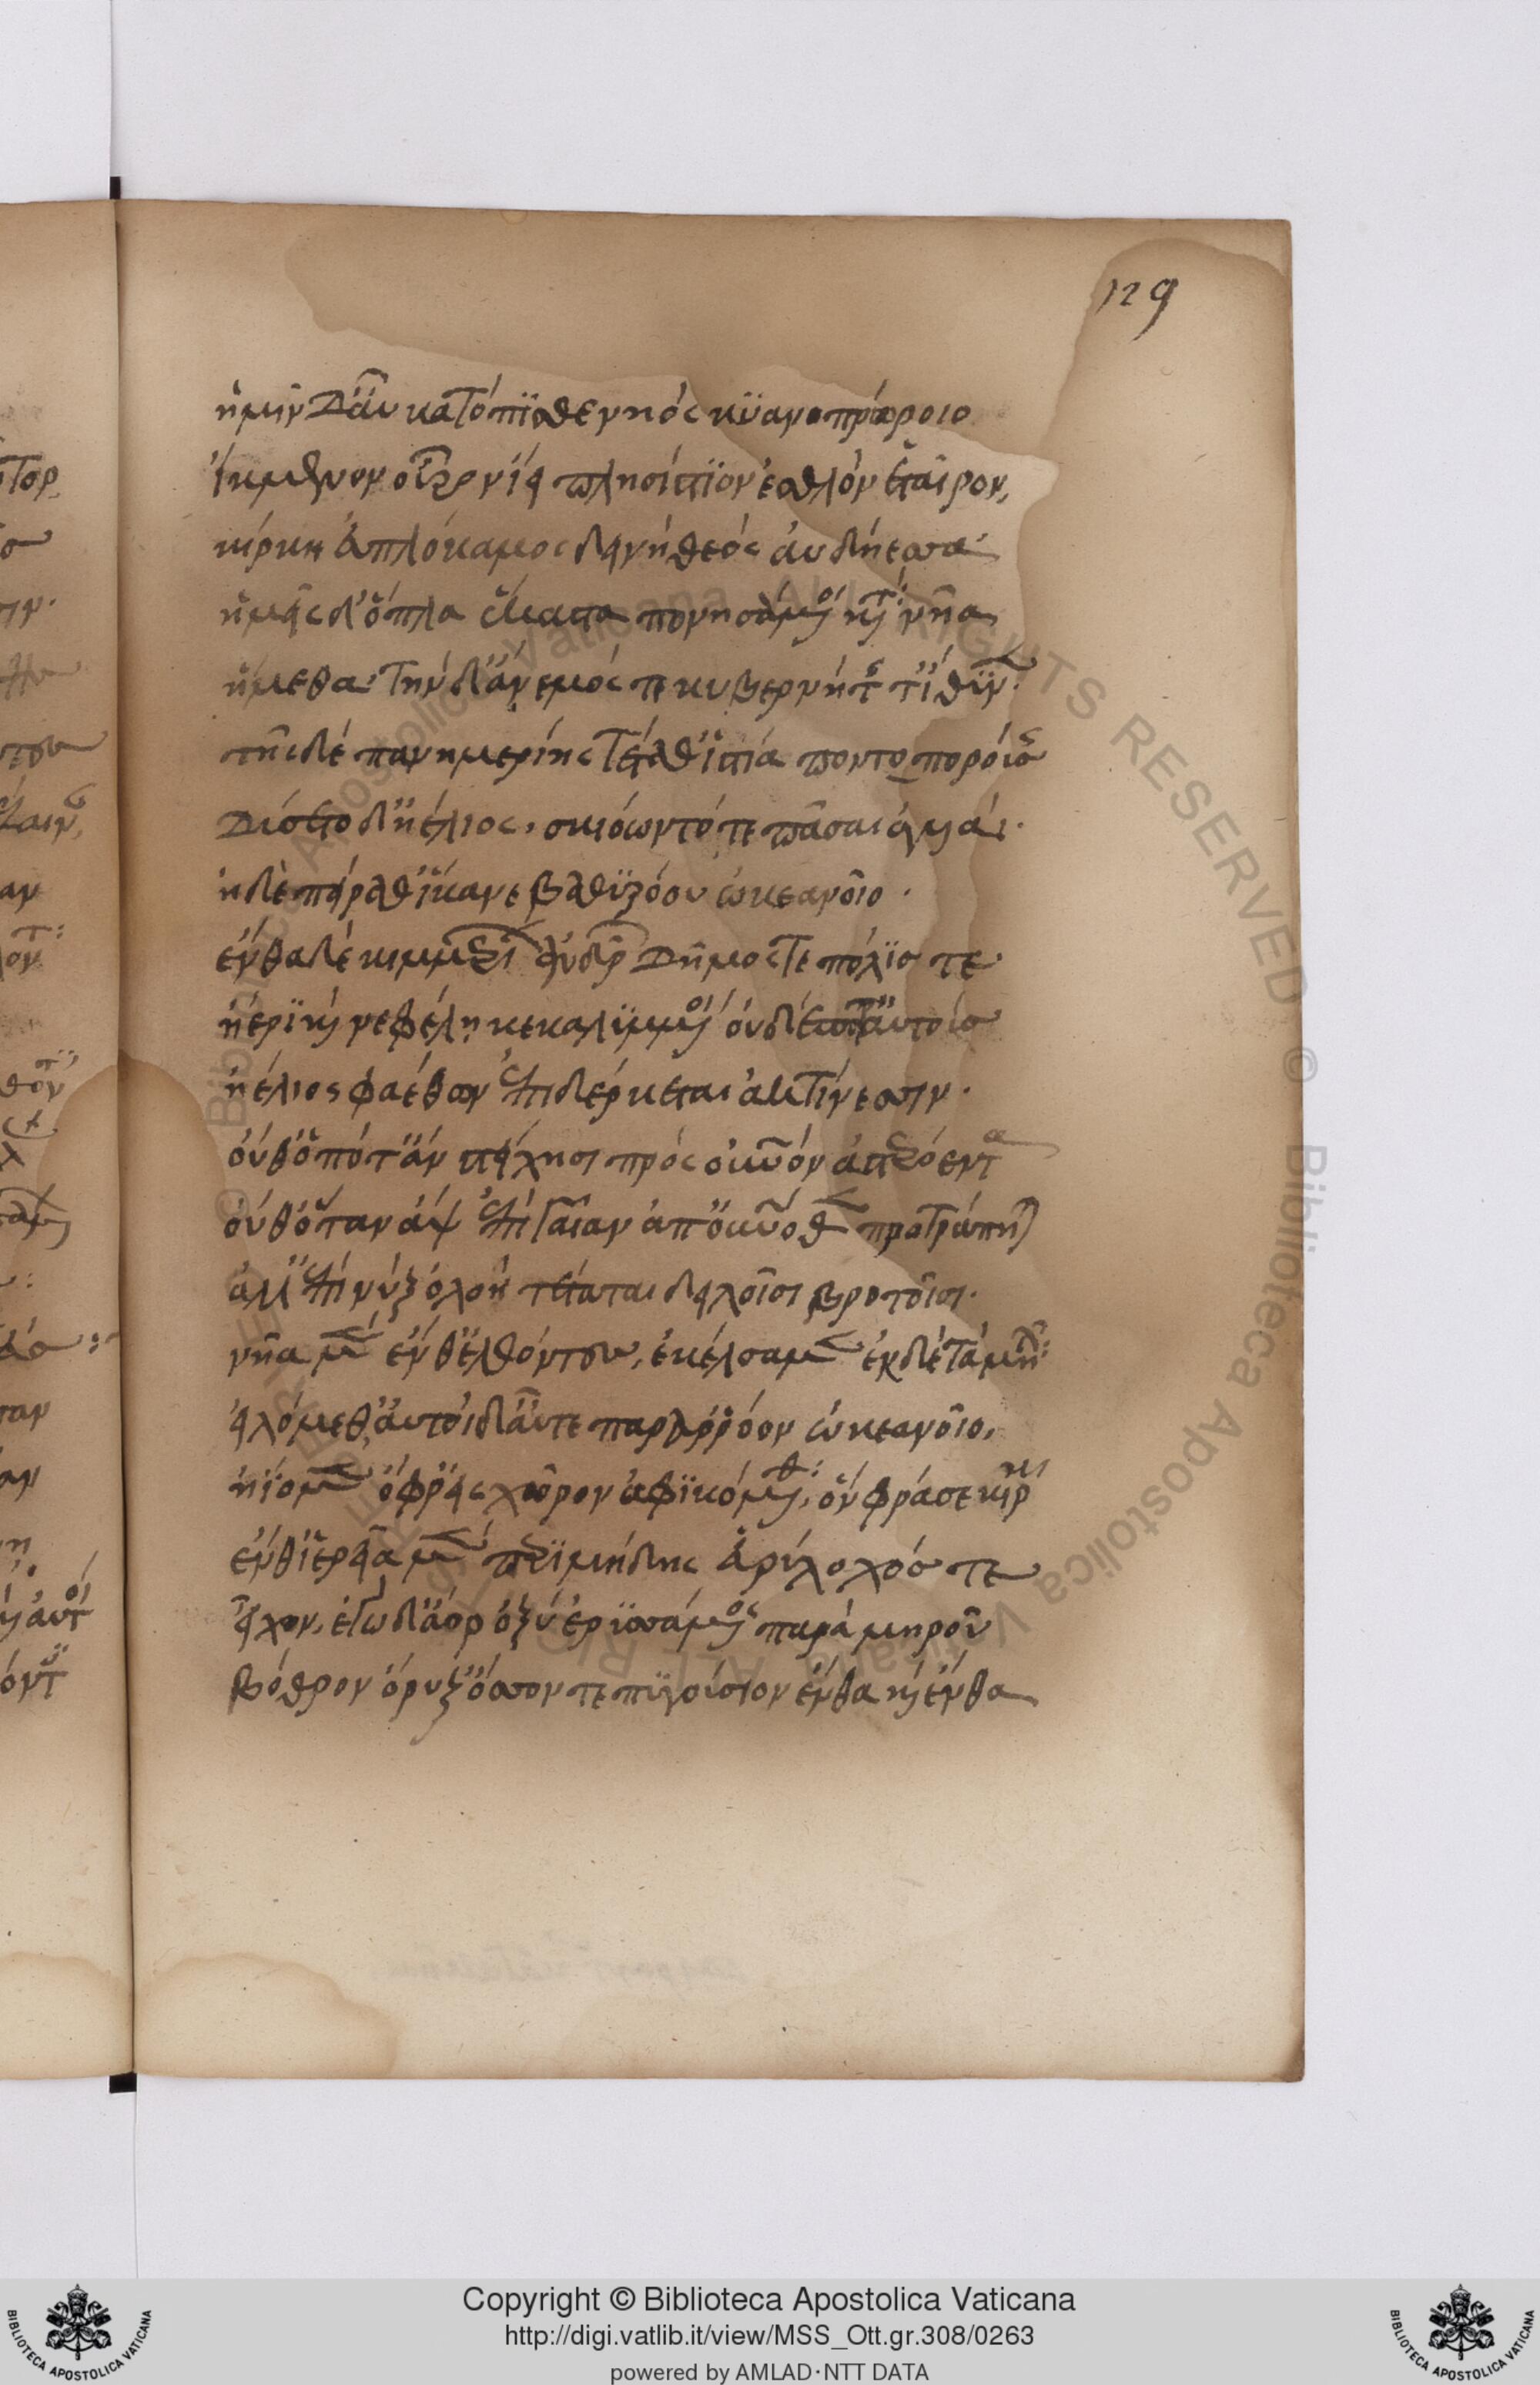 129
ἡμῖν δ᾽ αὖ κατόπισθε νηὸς κυανοπρώροιο
ἴκμενον οὖρον ἵει πλησίστιον ἐσθλὸν ἑταῖρον,
κίρκη ἐϋπλόκαμος δεινὴ θεὸς αὐδήεσσα·
ἡμεῖς δ᾽ ὅπλα ἕκαστα πονησάμενοι κατὰ νῆα
ἥμεθα· τὴν δ᾽ ἄνεμός τε κυβερνήτης τ᾽ ἴθυνε·
τῆς δὲ πανημερίης τέταθ᾽ ἱστία ποντοπορούσης
δύσετο δ᾽ ἠέλιος, σκιόωντό τε πᾶσαι ἀγυιαί·
ἡ δὲ πείραθ᾽ ἵκανε βαθυῤῥόου ὠκεανοῖο·
ἔνθα δὲ κιμμερίων ἀνδρῶν δῆμός τε πόλις τε
ἠέρι καὶ νεφέλῃ κεκαλυμμένοι οὐδέποτ᾽ αὐτοὺς
ἠέλιος φαέθων ἐπιδέρκεται ἀκτίνεσσιν·
οὔθ᾽ ὁπότ᾽ ἂν στείχησι πρὸς οὐρανὸν ἀστερόεντα
οὔθ᾽ ὅταν ἂψ ἐπὶ γαῖαν ἀπ᾽ οὐρανόθεν προτράπηται
ἀλλ᾽ ἐπὶ νὺξ ὀλοὴ τέταται δειλοῖσι βροτοῖσι·
νῆα μὲν ἔνθ᾽ ἐλθόντες, ἐκέλσαμεν ἐκ δὲ τὰ μῆλα
εἱλόμεθ᾽ αὐτοὶ δ᾽ αὖτε παρὰ ῥόον ὠκεανοῖο,
ᾔομεν ὄφρ᾽ ἐς χῶρον ἀφικόμεθ᾽, ὃν φράσε κίρκη
ἔνθ᾽ ἱερεῖα μὲν περιμήδης εὐρύλοχός τε
εἶχον, ἐγὼ δ᾽ ἄορ ὀξὺ ἐρυσσάμενος παρὰ μηροῦ
βόθρον ὄρυξ᾽ ὅσσον τε πυγούσιον ἔνθα καὶ ἔνθα
Copyright © Biblioteca Apostolica Vaticana
http://digi.vatlib.it/view/MSS_Ott.gr.308/0263
powered by AMLAD·NTT DATA